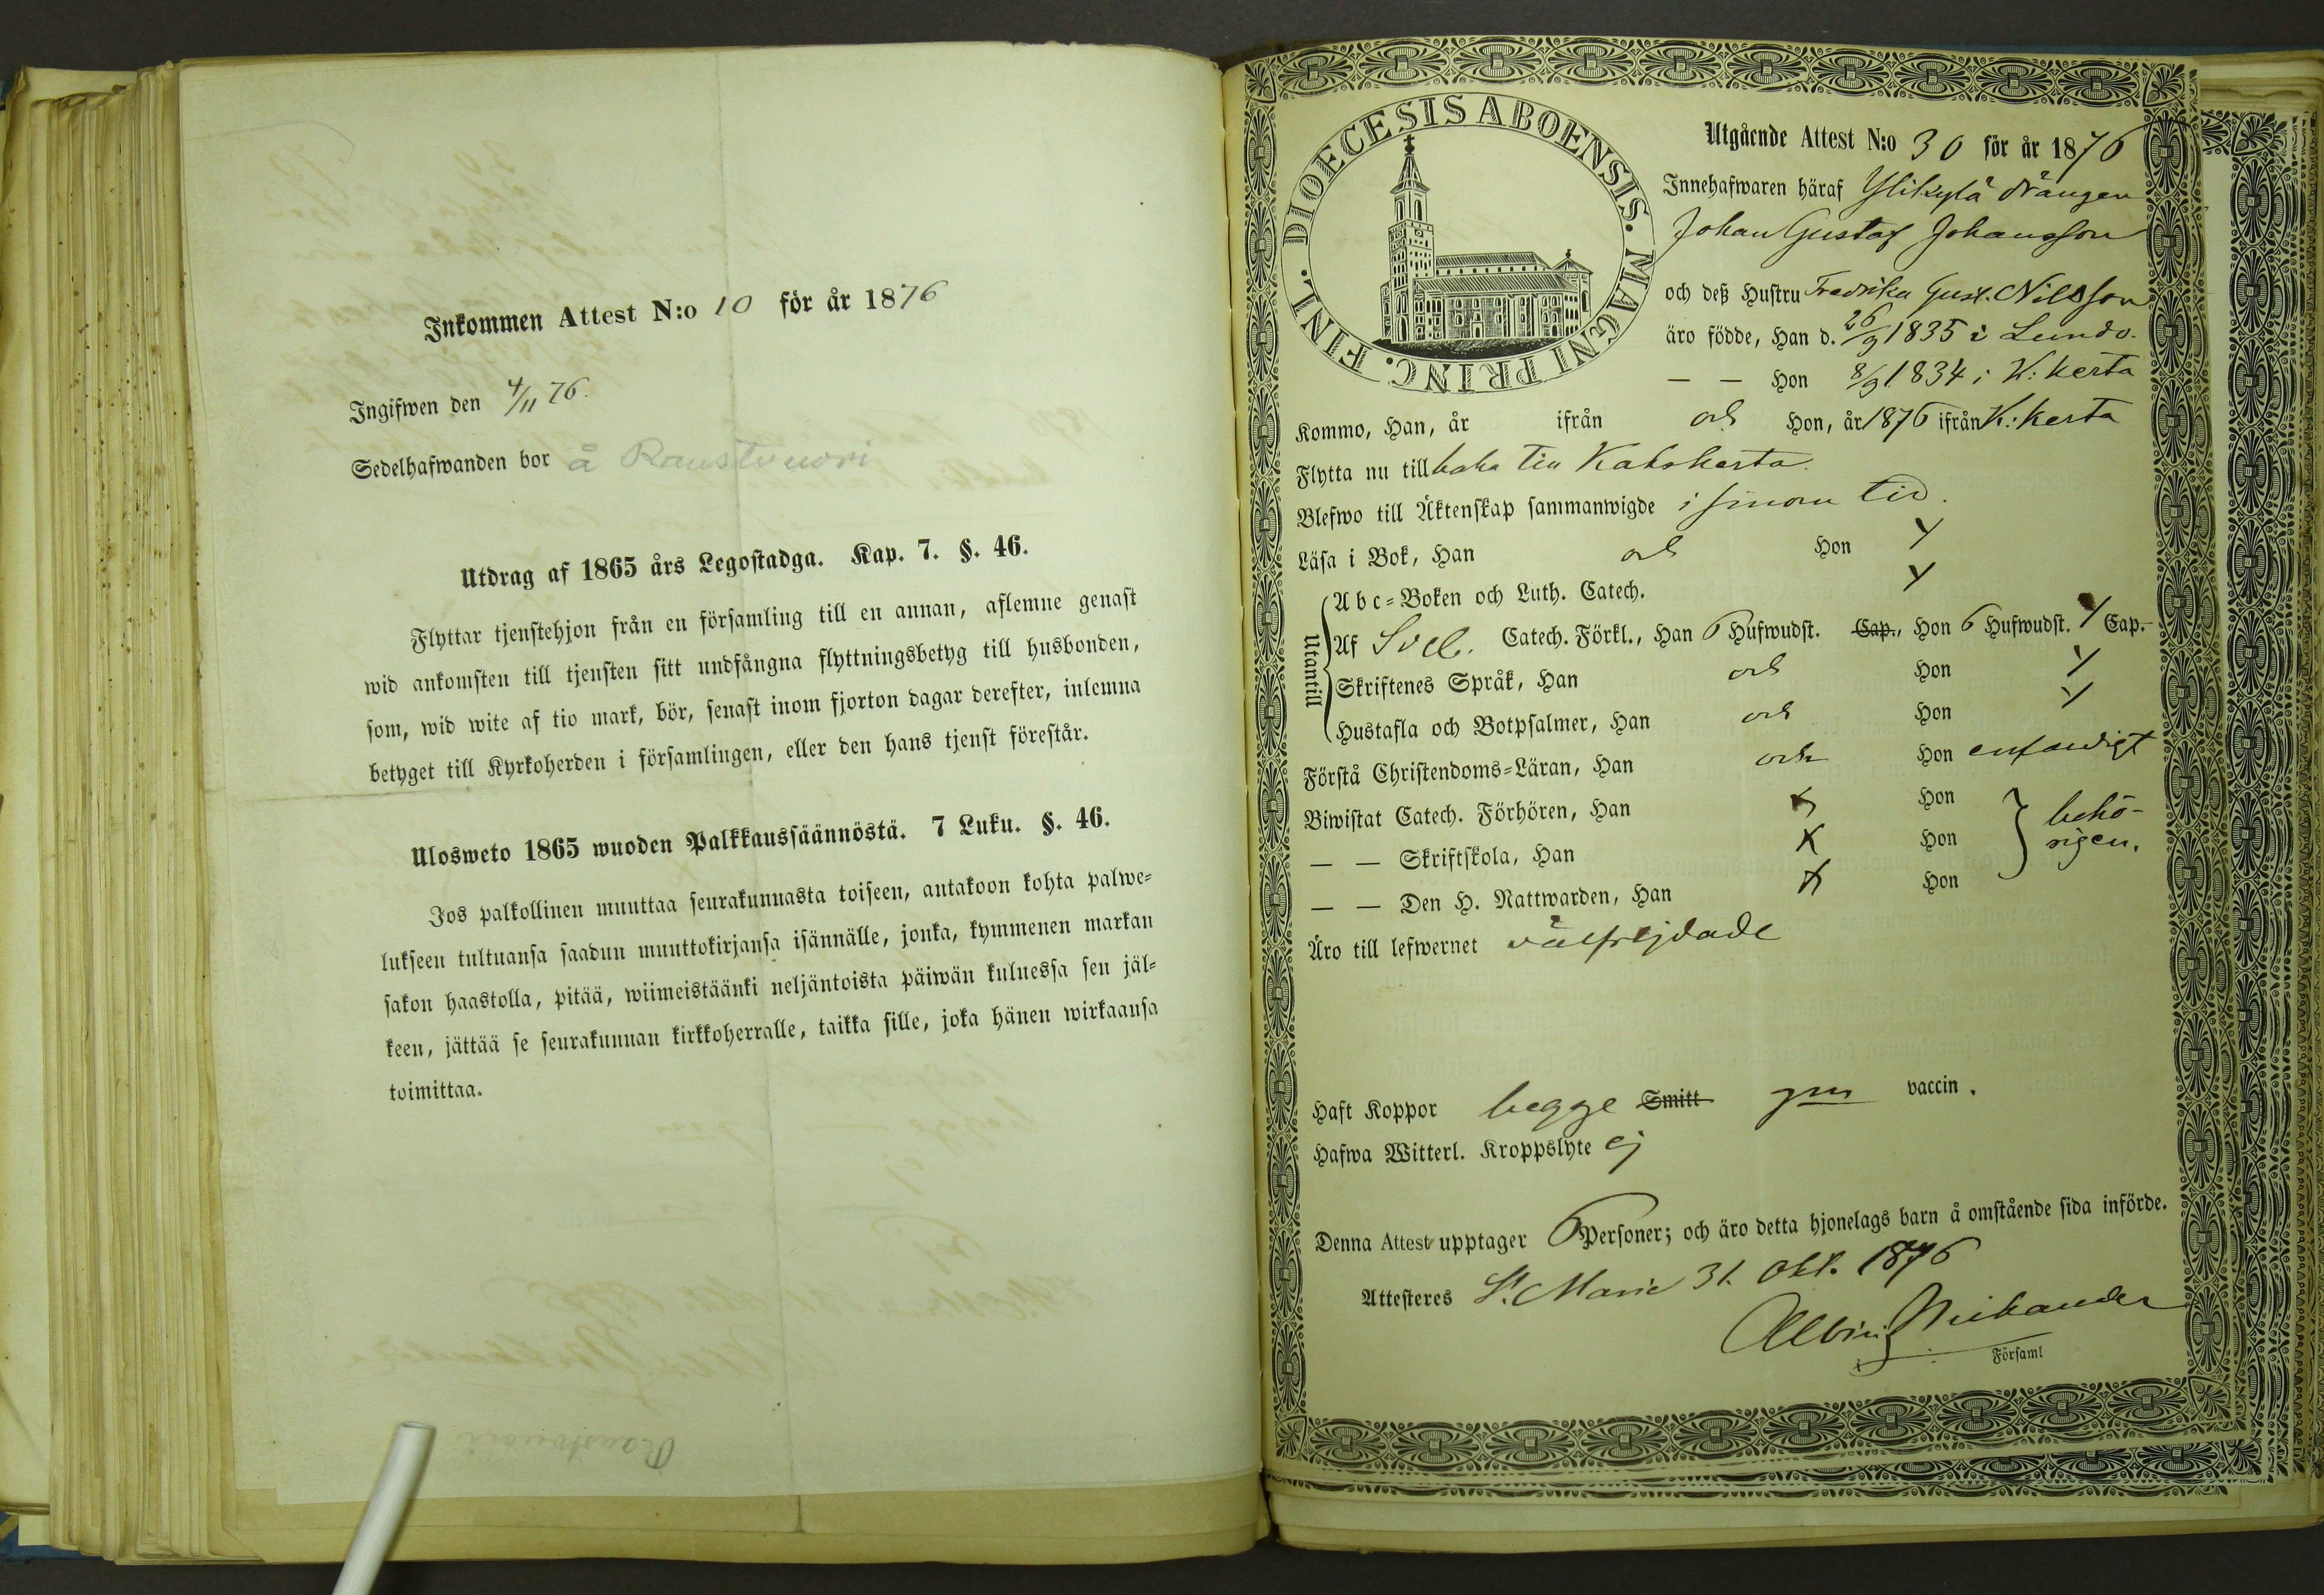 Inkommen Attest N:o 10 för år 1876
Ingifwen den 4/11 76.
Sedelhafwanden bor å Raustvuori
Utdrag af 1865 års Legostadga. Kap. 7. §. 46.
Flyttar tjenstehjon från en församling till en annan, aflemne genast
wid ankomsten till tjensten sitt undfångna flyttningsbetyg till husbonden,
som, wid wite af tio mark, bör, senast inom fjorton dagar derefter, inlemna
betyget till Kyrkoherden i församlingen, eller den hans tjenst förestår.
Ulosweto 1865 wuoden Palkkaussäännöstä. 7 Luku. §. 46.
Jos palkollinen muuttaa seurakunnasta toiseen, antakoon kohta palwe-
lukseen tultuansa saadun muuttokirjansa isännälle, jonka, kymmenen markan
sakon haastolla, pitää, wiimeistäänki neljäntoista päiwän kuluessa sen jäl-
keen, jättää se seurakunnan kirkkoherralle, taikka sille, joka hänen wirkaansa
toimittaa.
DIOECESIS ABOENSIS. MAGNI PRINC. FINL.
Utgående Attest N:o 30 för år 1876
Innehafwaren häraf Ylikylä drängen
Johan Gustaf Johansson
och deß Hustru Fredrika Gust. Nilsson
äro födde, Han d. 26/9 1835 i Lundo.
— — Hon 8/9 1834 i K:kerta
Kommo, Han, år ifrån och Hon, år 1876 ifrån K:kerta
Flytta nu tillbaka till Kakskerta.
Blefwo till Äktenskap sammanwigde i sinom tid.
Läsa i Bok, Han och Hon
Utantill
Abc-Boken och Luth. Catech.
Af Sveb. Catech. Förkl., Han 6 Hufwudst. Cap., Hon 6 Hufwudst. Cap.
Skriftenes Språk, Han och Hon
Hustafla och Botpsalmer, Han och Hon
Förstå Christendoms-Läran, Han och Hon enfaldigt
Biwistat Catech. Förhören, Han x Hon
— — Skriftskola, Han x Hon behö-
rigen.
— — Den H. Nattwarden, Han x Hon
Äro till lefwernet välfrejdade
Haft Koppor begge Smitt gm vaccin.
Hafwa Witterl. Kroppslyte ej
Denna Attest upptager 6 Personer; och äro detta hjonelags barn å omstående sida införde.
Attesteres St. Marie 31. Okt. 1876
Albin Mikander
Församl
Raustvuori